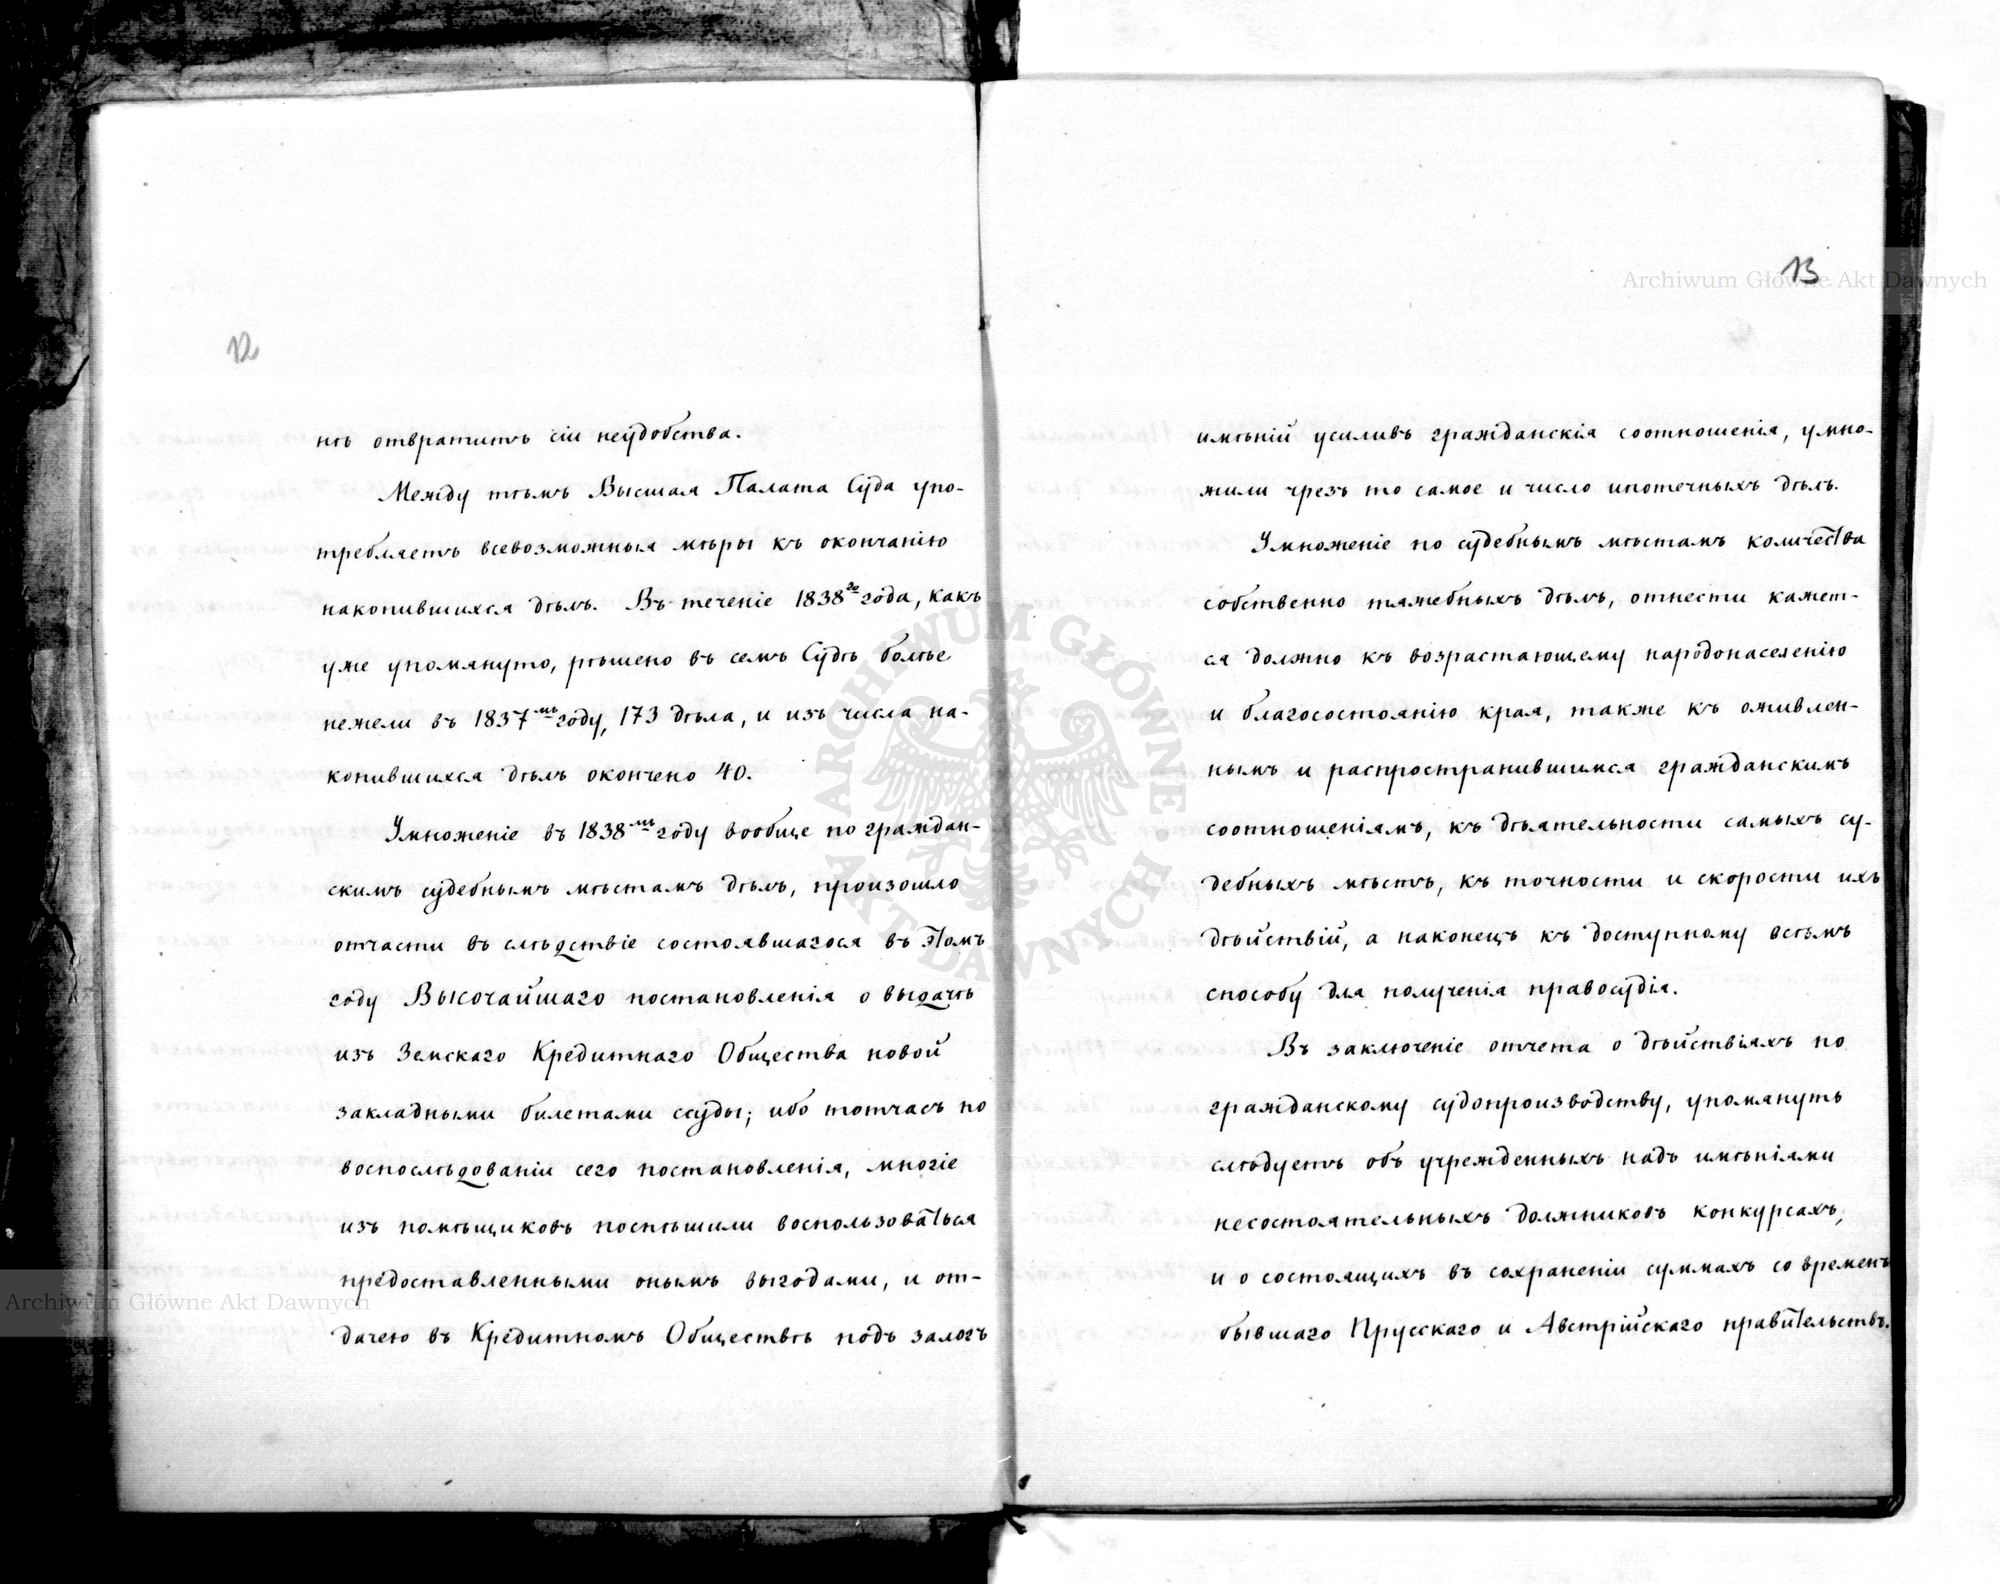 12
нѣ отвратить сіи неудобства.
Между тѣмъ Высшая Палата Суда упо-
требляетъ всевозможныя мѣры къ окончанію
накопившихся дѣлъ. Въ теченіе 1838го года, какъ
уже упомянуто, рѣшено въ семъ Судѣ болѣе
нежели въ 1837мъ году, 173 дѣла, и изъ числа на-
копившихся дѣлъ окончено 40.
Умноженіе въ 1838мъ году вообще по граждан-
скимъ судебнымъ мѣстамъ дѣлъ, произошло
отчасти въ слѣдствіе состоявшагося въ этомъ
году Высочайшаго постановленія о выдачѣ
изъ Земскаго Кредитнаго Общества новой
закладными билетами ссуды; ибо тотчасъ по
воспослѣдованіи сего постановленія, многіе
изъ помѣщиковъ поспѣшили воспользоваться
предоставленными онымъ выгодами, и от-
дачею въ Кредитномъ Обществѣ подъ залогъ
13
имѣній усиливъ гражданскія соотношенія, умно-
жили чрезъ то самое и число ипотечныхъ дѣлъ.
Умноженіе по судебнымъ мѣстамъ количества
собственно тяжебныхъ дѣлъ, отнести кажет-
ся должно къ возрастающему народонаселенію
и благосостоянію края, также къ оживлен-
нымъ и распространившимся гражданскимъ
соотношеніямъ, къ дѣятельности самыхъ су-
дебныхъ мѣстъ, къ точности и скорости ихъ
дѣйствій, а наконецъ къ доступному всѣмъ
способу для полученія правосудія.
Въ заключеніе отчета о дѣйствіяхъ по
гражданскому судопроизводству, упомянуть
слѣдуетъ объ учрежденныхъ надъ имѣніями
несостоятельныхъ должниковъ конкурсахъ,
и о состоящихъ въ сохраненіи суммахъ со временъ
бывшаго Прусскаго и Австрійскаго правительствъ.
Archiwum Główne Akt Dawnych
Archiwum Główne Akt Dawnych
ARCHIWUM GŁÓWNE · AKT DAWNYCH ·